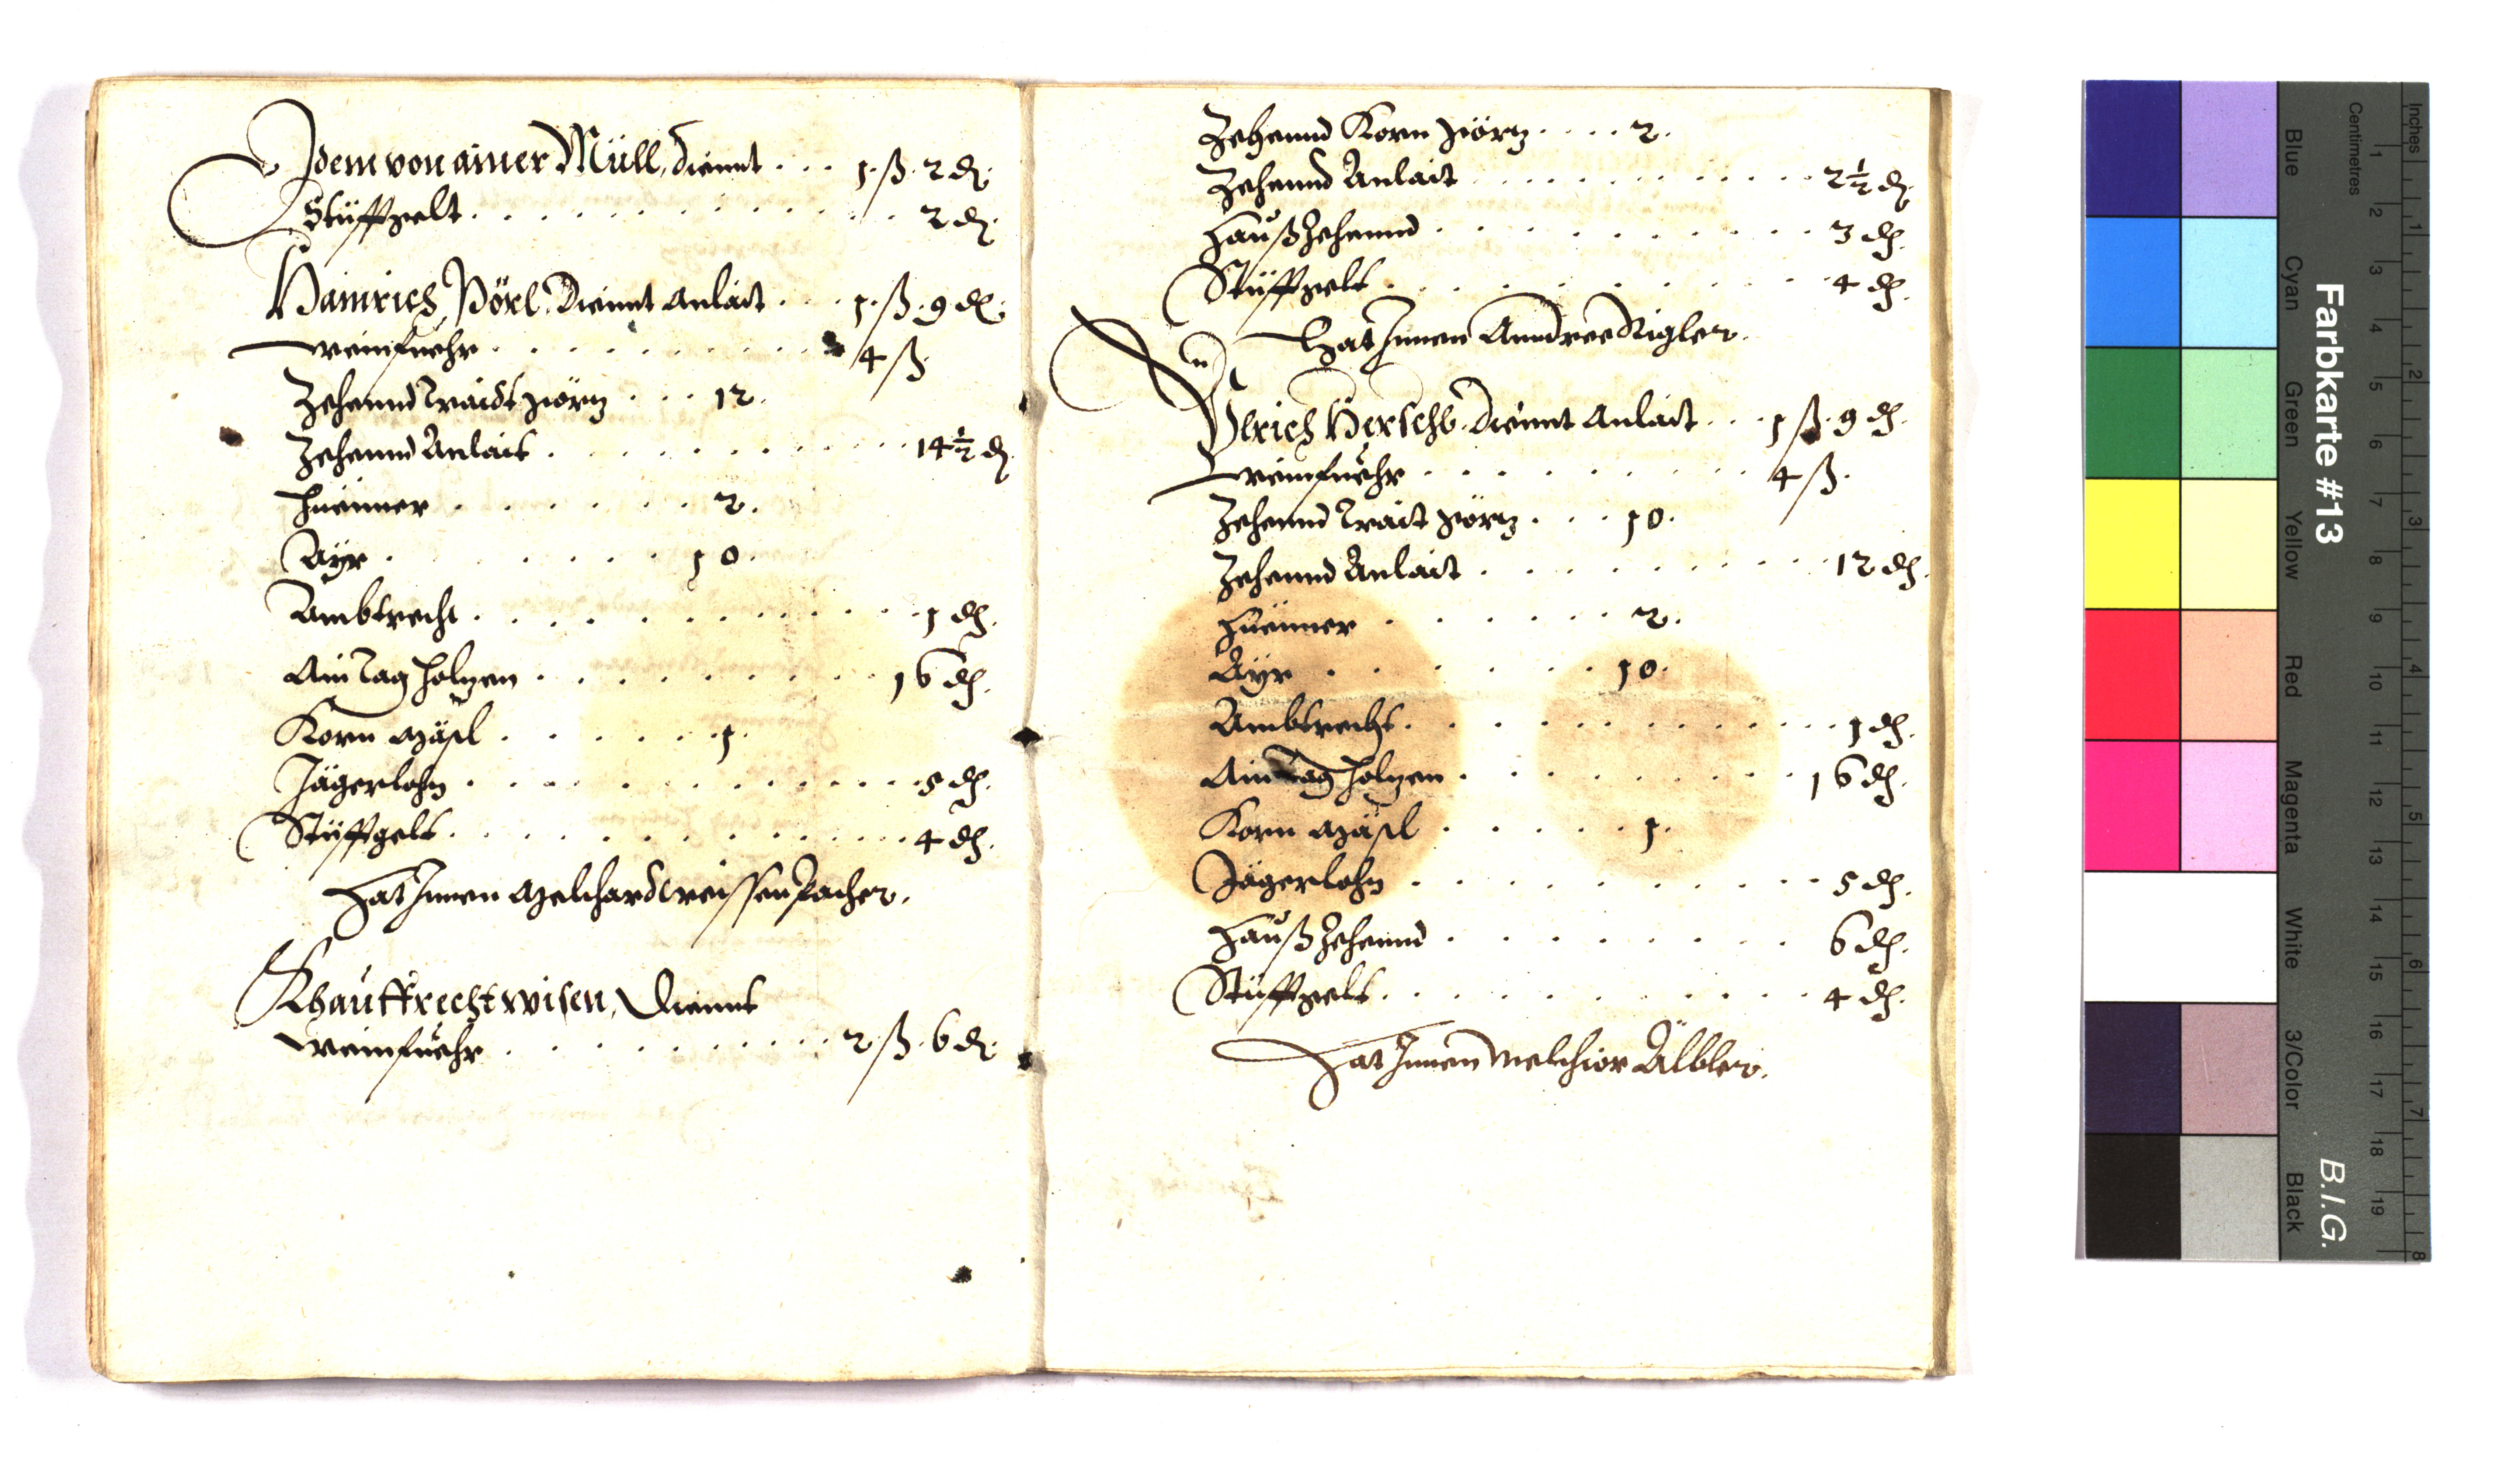 Idem von ainer Müll, diennt . . . 1 . ß . 2 d.
Stüfftgelt . . . . . . . . . . . . . 2 d.
Hainrich Pörl. Diennt Anlait . . . 1 . ß . 9 d.
Weinfuehr . . . . . . . . . . . 4 ß
Zehennd Traidt . . . 12 .
Zehennd Anlait . . . . . . . . . . 14 1/2 d.
Hüenner . . . . . . . 2 .
Ayr . . . . . . . 10 .
Ambtrecht . . . . . . . . . . . 1 d.
Ain Tag Holzen . . . . . . . . . 16 d.
Korn Mäsl . . . . . . 1 .
Jägerlohn . . . . . . . . . . . . 5 d.
Stüfftgelt . . . . . . . . . . . . 4 d.
Hat Innen Melchard Weissenpacher.
Khauffrechtwisen, Diennt
Weinfuehr . . . . . . . . . . 2 . ß . 6 d.
Zehennd Korn . . . . 2 .
Zehennd Anlait . . . . . . . . . . 2 1/2 d.
Hauß Zehennd . . . . . . . . . . 3 d.
Stüfftgelt . . . . . . . . . . . 4 d.
Hat Innen Anndree Rigler.
Ulrich Herschl. Diennt Anlait . . . 1 ß . 9 d.
Weinfuehr . . . . . . . . . . 4 ß .
Zehennd Trait . . . 10 .
Zehennd Anlait . . . . . . . . . 12 d.
Hüenner . . . . . . 2 .
Ayr . . . . . . 10 .
Ambtrecht . . . . . . . . . . . 1 d.
Ain Tag Holzen . . . . . . . . . 16 d.
Korn Mäsl . . . . . 1 .
Jägerlohn . . . . . . . . . . . 5 d.
Hauß Zehennd . . . . . . . . 6 d.
Stüfftgelt . . . . . . . . . . . 4 d.
Hat Innen Melchior Älbler.
Farbkarte #13
B.I.G.
Blue
Cyan
Green
Yellow
Red
Magenta
White
3/Color
Black
Centimetres
1 2 3 4 5 6 7 8 9 10 11 12 13 14 15 16 17 18 19
Inches
1 2 3 4 5 6 7 8